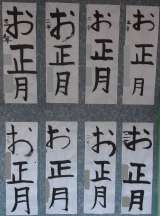 お正月
お正月
お正月
お正月
お正月
お正月
お正月
お正月